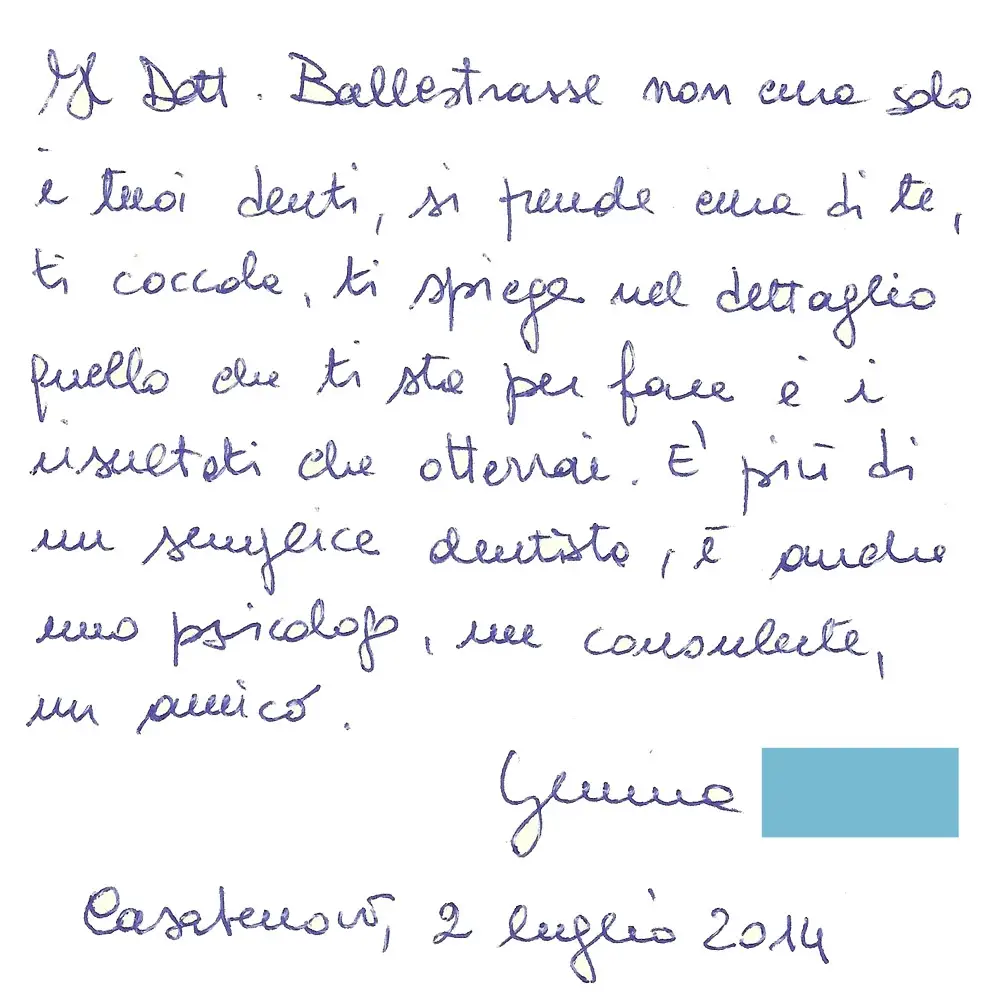 Il Dott. Ballestrasse non cura solo
i tuoi denti, si prende cura di te,
ti coccola, ti spiega nel dettaglio
quello che ti sta per fare e i
risultati che otterrai. E' più di
un semplice dentista, è anche
uno psicologo, un consulente,
un amico.
Gemma
Casatenovo, 2 luglio 2014